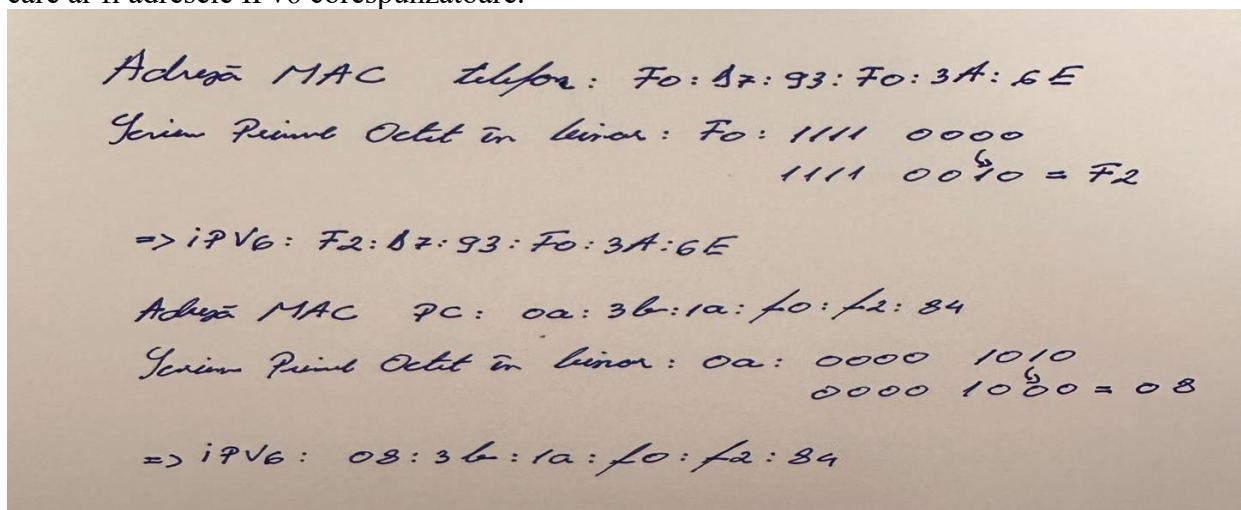 care ar fi adresele IPv6 corespunzătoare.
Adresă MAC telefon: F0:B7:93:F0:3A:6E
Scriem Primul Octet în binar: F0: 1111 0000
1111 0010 = F2
=> iPV6: F2:B7:93:F0:3A:6E
Adresă MAC PC: 0a:3b:1a:f0:f2:84
Scriem Primul Octet în binar: 0a: 0000 1010
0000 1000 = 08
=> iPV6: 08:3b:1a:f0:f2:84